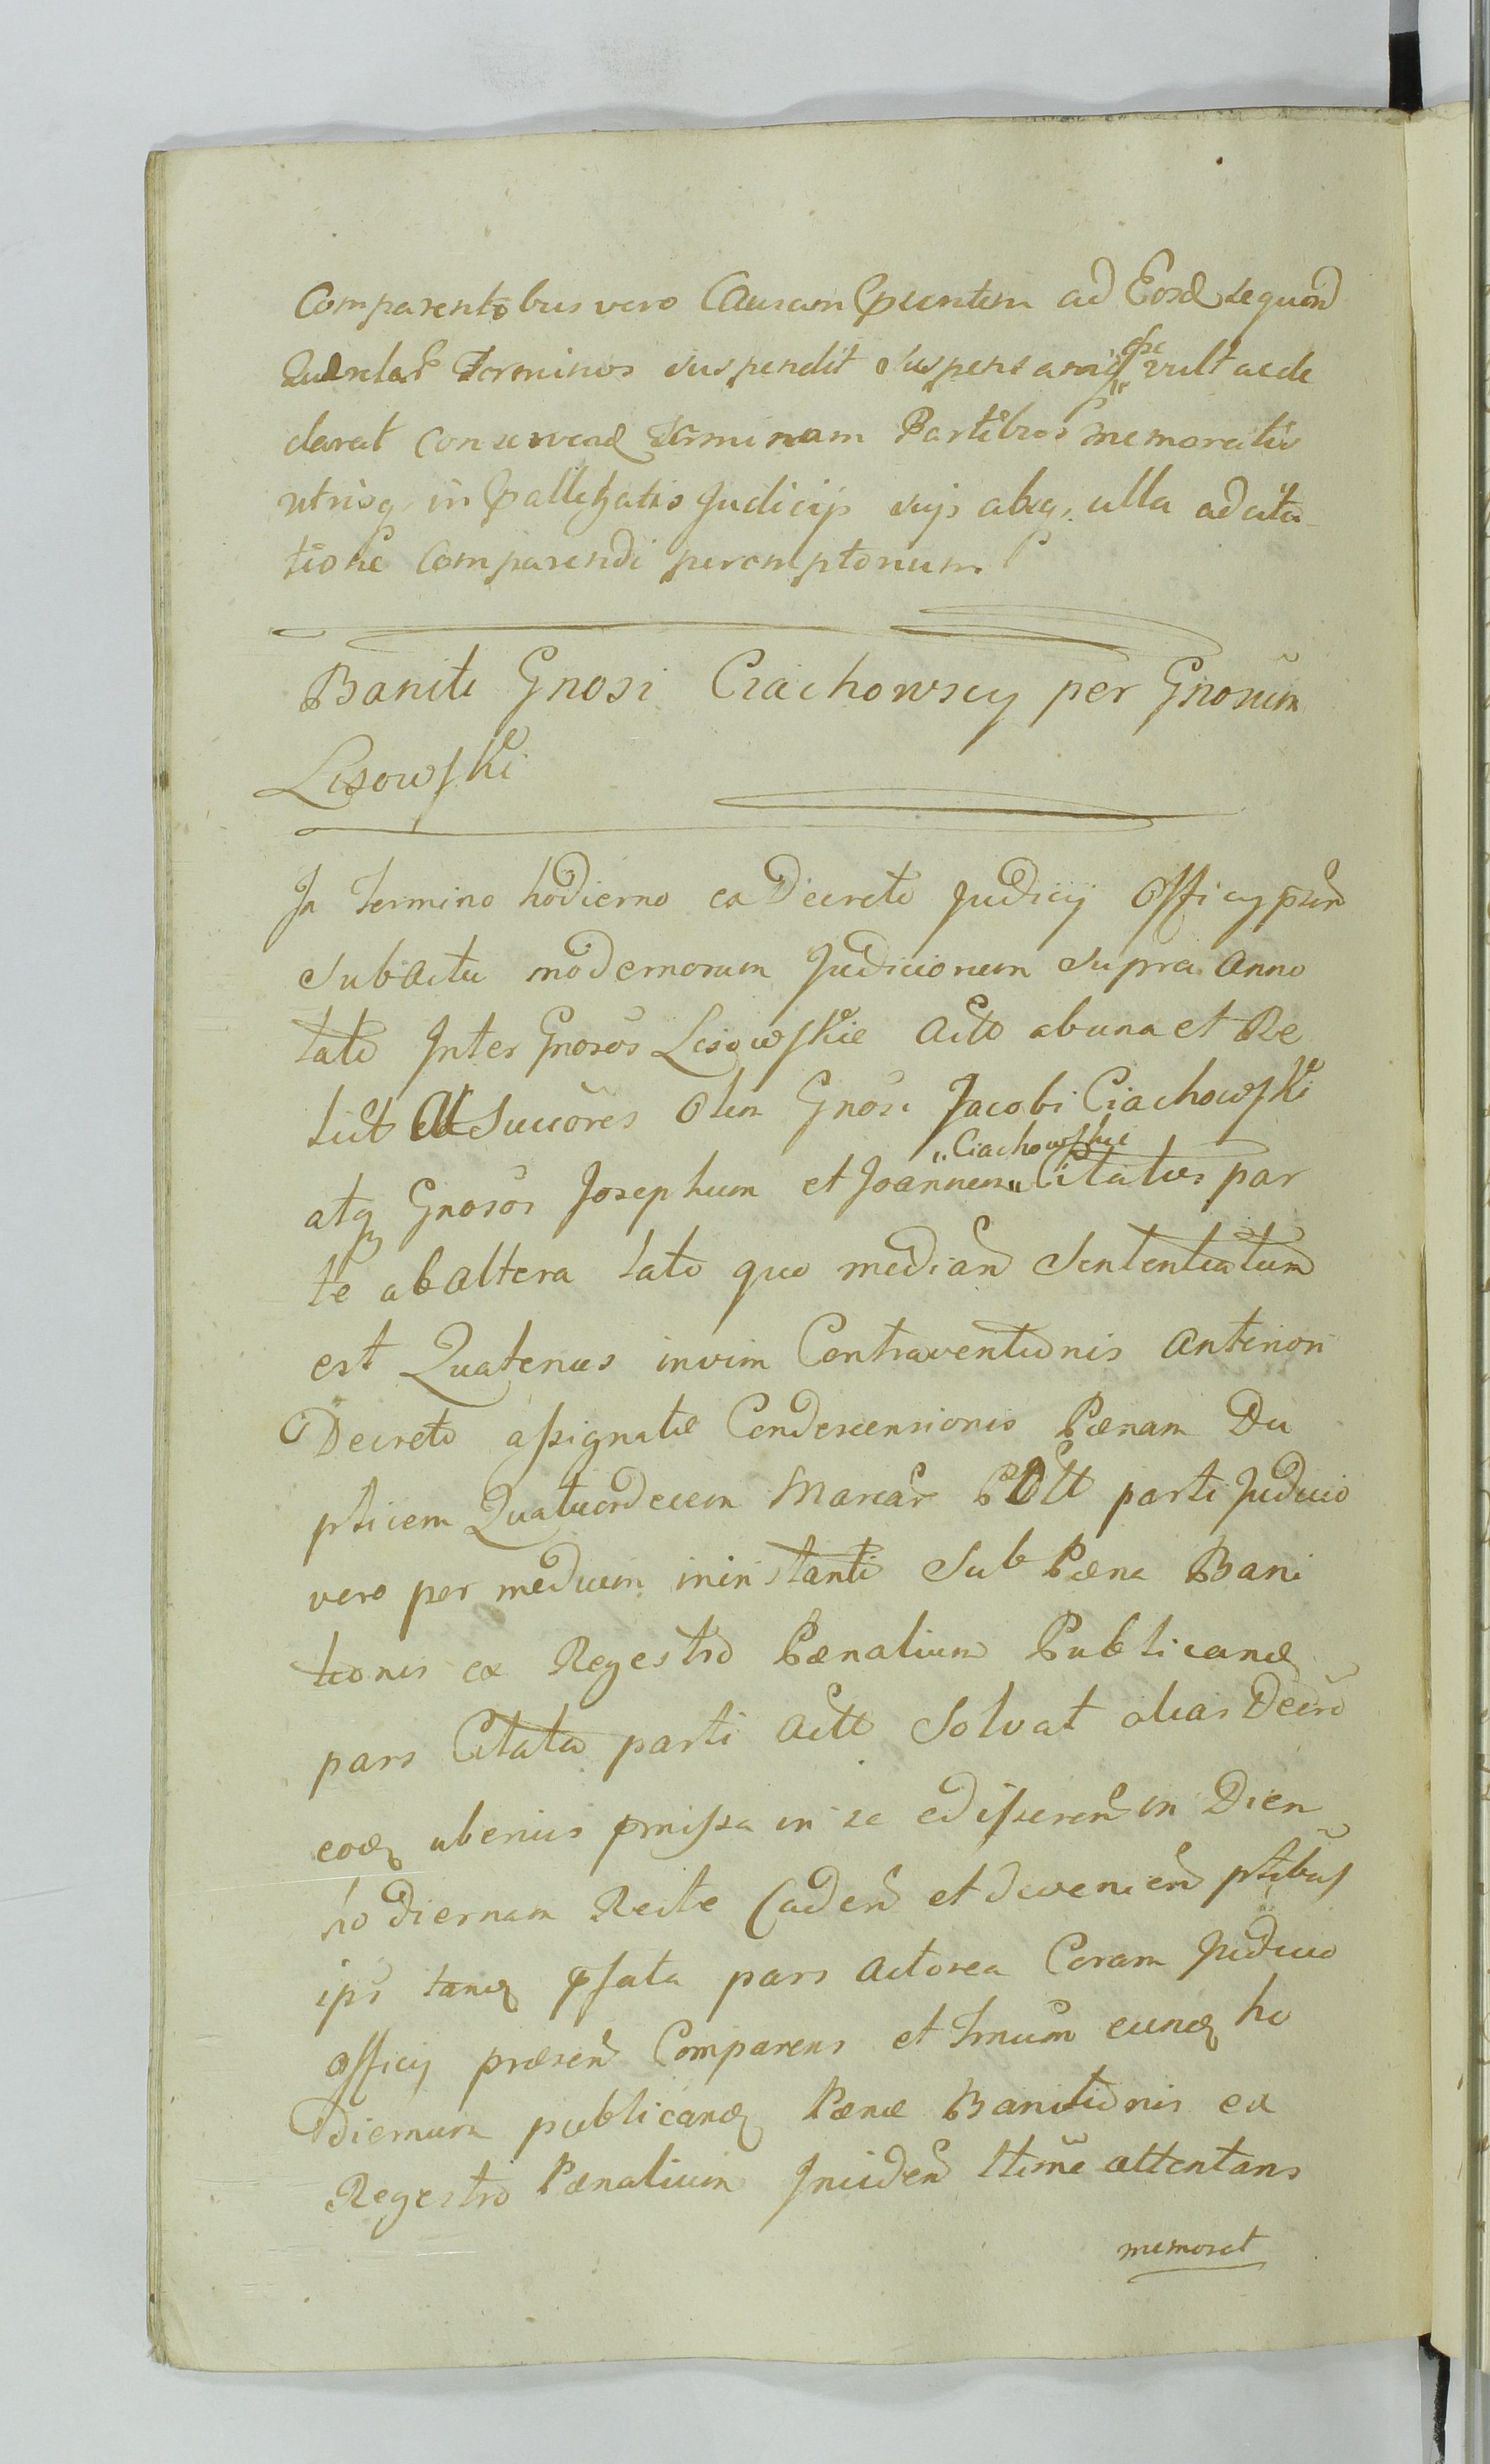 Comparentibus vero Causam Pruntem ad Eosd sequend
Querelar Terminos suspendit suspensamq esse vult ac de
clarat conservand Terminum Partibus memoratis
utrisq in Pallegatis Judicijs suis absq ulla adcita
tione Comparendi peremptorium
Baniti Gnosi Ciachowscy per Gnosum
Lisowski
In Termino hodierno ex Decreto Judicij Officij prsen
sub actu modernorum Judiciorum supra Anno
tato Inter Gnosos Lisowskie Acto ab una et Re
lict et Succores Olim Gnosi Jacobi Ciachowski
atq Gnosos Josephum et Joannem „Ciachowskie„ Citatos par
te ab altera lato quo median Sententiatum
est Quatenus in vim Contraventionis Anteriori
Decreto assignatæ Condescensionis Pænam Du
plicem Quatuordecem Marcar Pol parti Judicio
vero per mediam in instanti Sub Pæna Bani
tionis ex Regestro Pænalium Publicand
pars Citata parti Act Solvat alias Decro
eod uberius pmissa in se edisseren in Diem
hodiernam Recte Caden et devenien ptibus
ips tanq pfata pars Actorea Coram Judicio
officij præsen Comparens et Trnum eund ho
diernum publicand Pænæ Banitionis ex
Regestro Pænalium Inciden ltime attentans
memorat